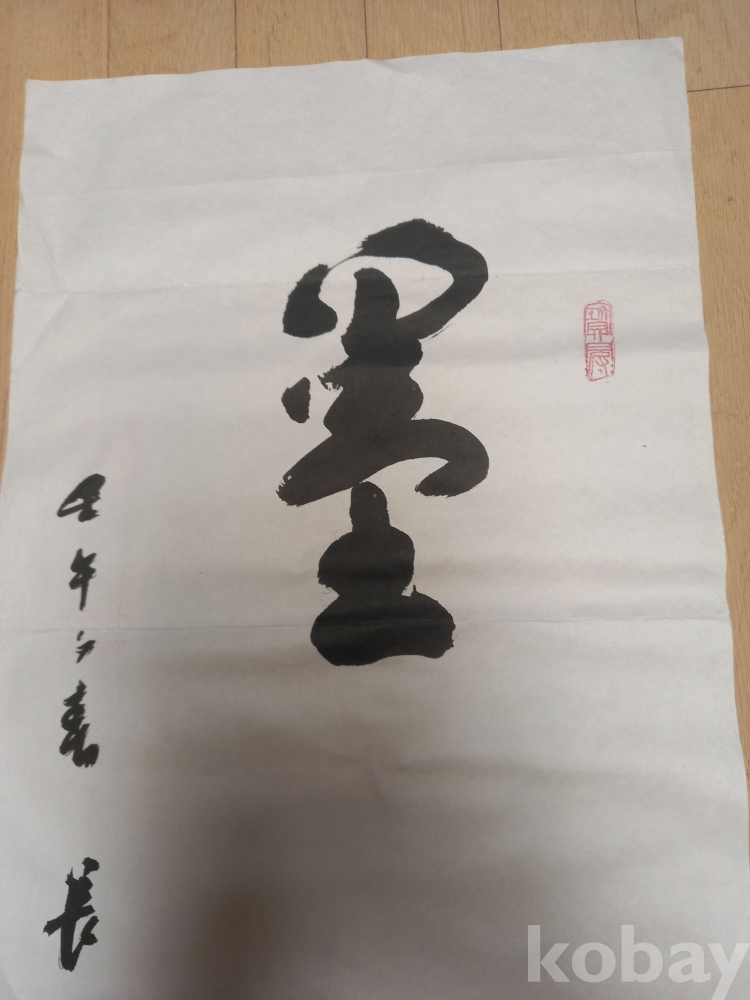 墨
壬午之春 長
kobay